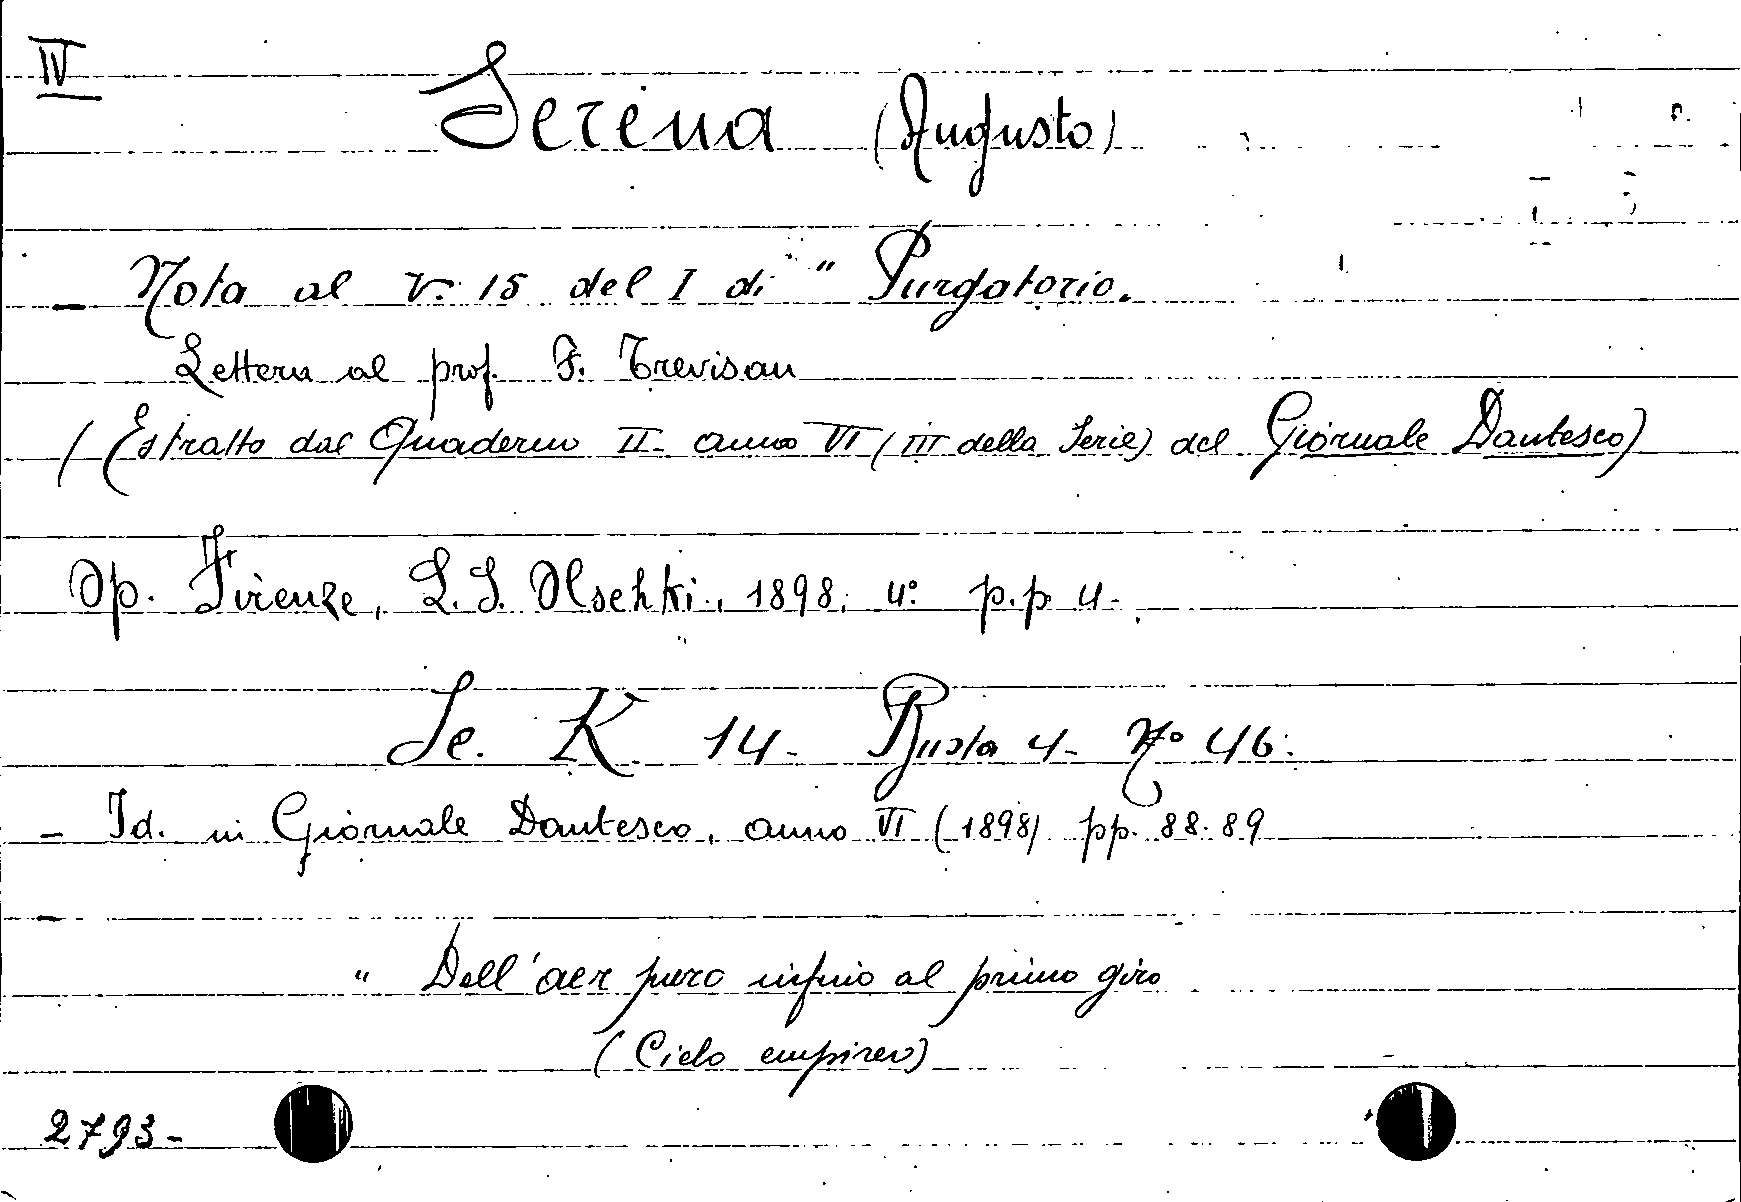 IV
Serena (Augusto)
- Nota al v. 15 del I di " Purgatorio.
Lettera al prof. F. Trevisan
(Estratto dal Quaderno II - anno VI (III della Serie) del Giornale Dantesco)
Op. Firenze, L. S. Olschki, 1898, 4° p.p. 4.
Se. K 14 - Busta 4 - N° 46.
- Id. in Giornale Dantesco, anno VI (1898) pp. 88.89
-
" Dell'aer puro infino al primo giro
(Cielo empireo)
2793-